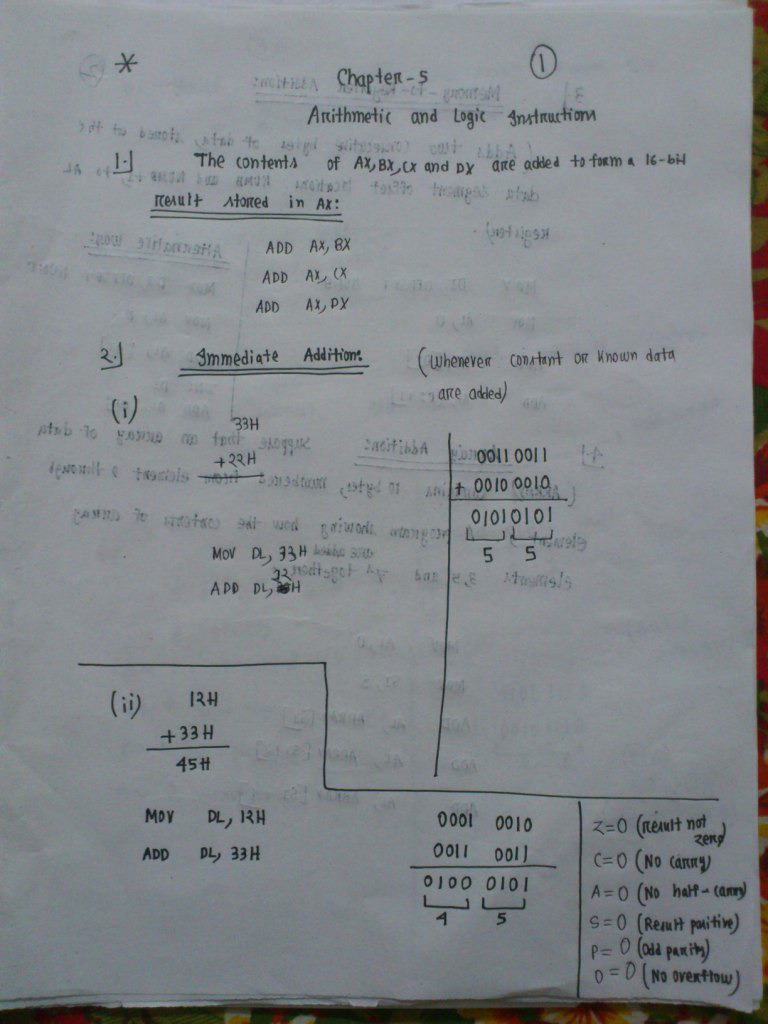 * 1
Chapter-5
Arithmetic and Logic Instructions
1.] The contents of AX, BX, CX and DX are added to form a 16-bit
result stored in AX:
ADD AX, BX
ADD AX, CX
ADD AX, DX
2.] Immediate Addition: (Whenever constant or known data
are added)
(i)
33H
+22H
MOV DL, 33H
ADD DL, 22H
0011 0011
+ 0010 0010
0101 0101
5 5
(ii) 12H
+33H
45H
MOV DL, 12H
ADD DL, 33H
0001 0010
0011 0011
0100 0101
4 5
Z=0 (result not
zero)
C=0 (No carry)
A=0 (No half-carry)
S=0 (Result positive)
P=0 (Odd parity)
O=0 (No overflow)